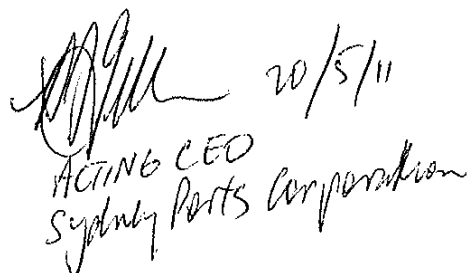 20/5/11
ACTING CEO
Sydney Ports Corporation